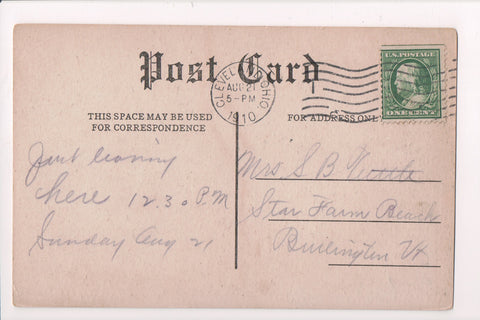 Post Card
CLEVELAND, OHIO.
AUG 21
5-PM
1910
U.S. POSTAGE
ONE CENT
THIS SPACE MAY BE USED
FOR CORRESPONDENCE
FOR ADDRESS ONLY
Just leaving
here 12.30 P.M
Sunday Aug 21
Mrs. S B
Star Farm Beach
Burlington Vt